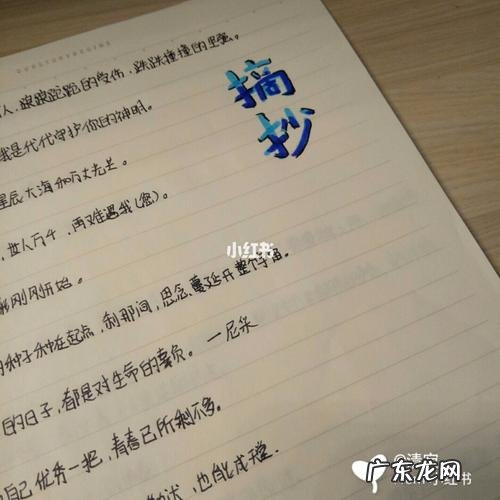 摘
抄
人.踉踉跄跄的受伤.跌跌撞撞的坚强。
我是代代守护你的神明。
星辰大海和万丈光芒。
,世人万千,再难遇我(您)。
刚刚开始。
种子种在起点,刹那间,思念蔓延开整个宇宙。
的日子,都是对生命的辜负。—尼采
自己优秀一把,青春已所剩不多。
,也能成
小红书
@清宴
小红书
广东龙网